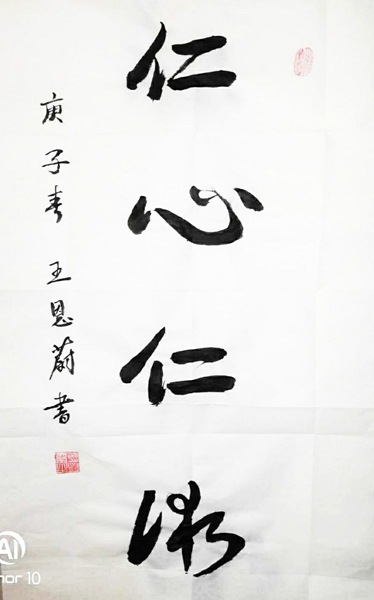 仁心仁术
庚子春 王恩蔚書
AI
nor 10